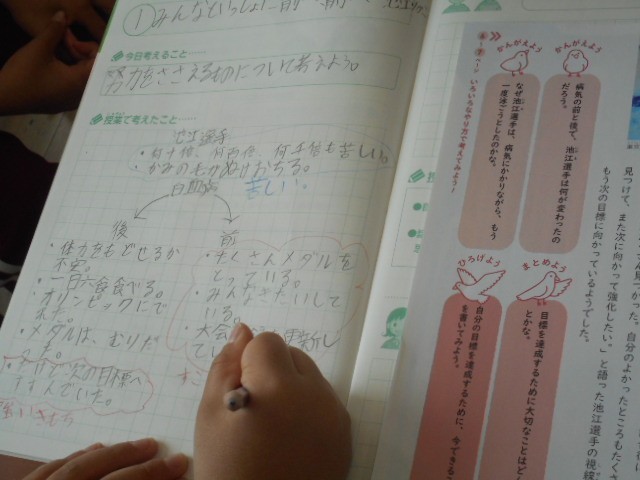 ①みんなといっしょに前へ前へ
今日考えること……
努力をささえるものについて考えよう。
授業で考えたこと……
池江選手
・何十倍、何百倍、何千倍も苦しい。
・かみのもうぬけおちる。
白血病 苦しい。
後
・体力をもどせるか
不安。
・一日六食食べる。
・オリンピックにで
れた。
・メダルは、むりだ
った。
・だけど次の目標へ
すすんでいた。
強い気もち
前
・たくさんメダルを
とっている。
・みんなきたいして
いる。
・大会
更新し
てい
すご
いろいろなやり方で考えてみよう!
かんがえよう
病気の前と後で、池江選手は何が変わったの
だろう。
かんがえよう
なぜ池江選手は、病気にかかりながら、もう
一度泳ごうとしたのかな。
まとめよう
目標を達成するために大切なことはど
とかな。
ひろげよう
自分の目標を達成するために、今できるこ
を書いてみよう。
かった。自分のよかったところもたくさ
見つけて、また次に向かって強化したい。」と語った池江選手の視線
もう次の目標に向かっているようでした。